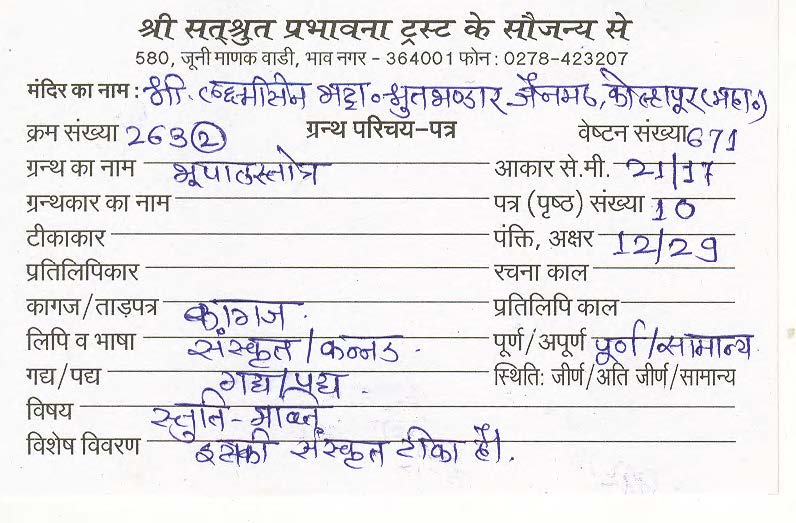 श्री सत्श्रुत प्रभावना ट्रस्ट के सौजन्य से
580, जूनी माणक वाडी, भाव नगर - 364001 फोन : 0278-423207
मंदिर का नाम : श्री. लक्ष्मीसेन भट्टा० श्रुतभण्डार जैनमठ, कोल्हापूर (महा०)
क्रम संख्या 263 (2) ग्रन्थ परिचय-पत्र वेष्टन संख्या 671
ग्रन्थ का नाम भूपालस्तोत्र आकार से.मी. 21/17
ग्रन्थकार का नाम पत्र (पृष्ठ) संख्या 10
टीकाकार पंक्ति, अक्षर 12/29
प्रतिलिपिकार रचना काल
कागज/ताड़पत्र कागज. प्रतिलिपि काल
लिपि व भाषा संस्कृत/कन्नड. पूर्ण/अपूर्ण पूर्ण/सामान्य.
गद्य/पद्य गद्य/पद्य. स्थिति: जीर्ण/अति जीर्ण/सामान्य
विषय स्तुति-भक्ति
विशेष विवरण इसकी संस्कृत टीका है।.